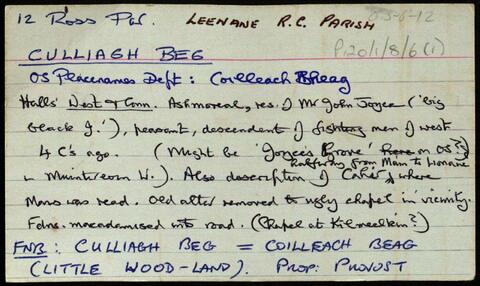 12 Ross Par. LEENANE R.C. PARISH
P120/1/8/6(1)
CULLIAGH BEG
OS Placenames Dept: Coilleach Bheag
Halls' West & Conn. Ashmoreal, res. of Mr John Joyce ('big
Jack J.'), peasant, descendent of fighting men of west
4 C's ago. (Might be 'Joyce's Grove' on OS??
halfway from Maam to Leenane
in Muintereoin W.). Also description of Caher, where
Mass was read. Old altar removed to ugly chapel in vicinity.
Fdns. macadamised into road. (Chapel at Kilmeelkin?)
FNB: CULLIAGH BEG = COILLEACH BEAG
(LITTLE WOOD-LAND). PROP: PROVOST